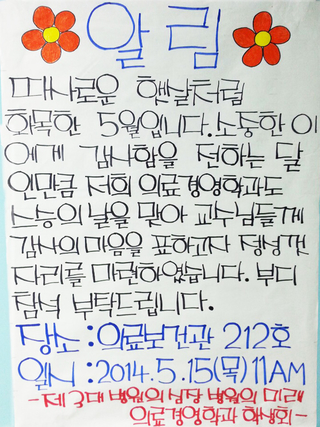 알림
따사로운 햇살처럼
화목한 5월입니다. 소중한 이
에게 감사함을 전하는 달
인만큼 저희 의료경영학과도
스승의 날을 맞아 교수님들께
감사의 마음을 표하고자 정성껏
자리를 마련하였습니다. 부디
참석 부탁드립니다.
장소 : 의료보건관 212호
일시 : 2014. 5. 15(목) 11AM
- 제 3대 병원의 심장 병원의 미래
의료경영학과 학생회 -